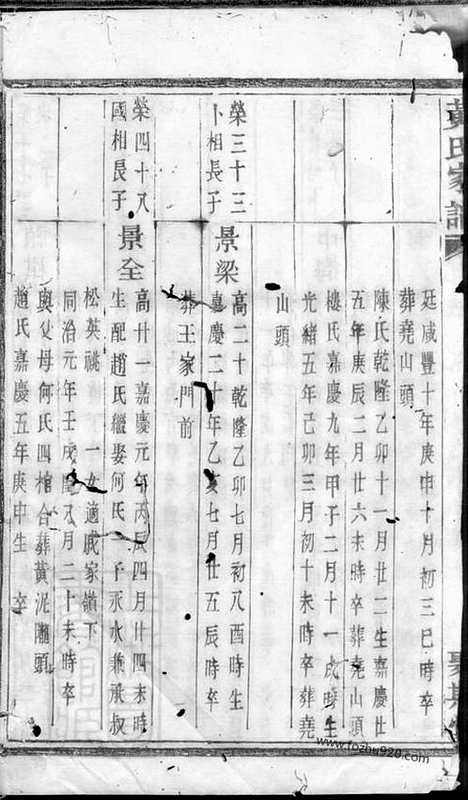 黃氏家譜
廷咸豐十年庚申十月初三巳時卒
葬堯山頭
陳氏乾隆乙卯十一月廿二生嘉慶廿
五年庚辰二月廿六未時卒葬堯山頭
樓氏嘉慶九年甲子二月十一戌時生
光緒五年己卯三月初十未時卒葬堯
山頭
榮三十三
卜相長子
景梁
高二十乾隆乙卯七月初八酉時生
嘉慶二十年乙亥七月廿五辰時卒
葬王家門前
榮四十八
國相長子
景全
高廿一嘉慶元年丙辰四月廿四未時
生配趙氏繼娶何氏一子永水兼承叔
松英祧下一女適戚家嶺下
同治元年壬戌八月二十未時卒
與父母何氏四棺合葬黃泥隴頭
趙氏嘉慶五年庚申生 卒
www.fozhu920.com